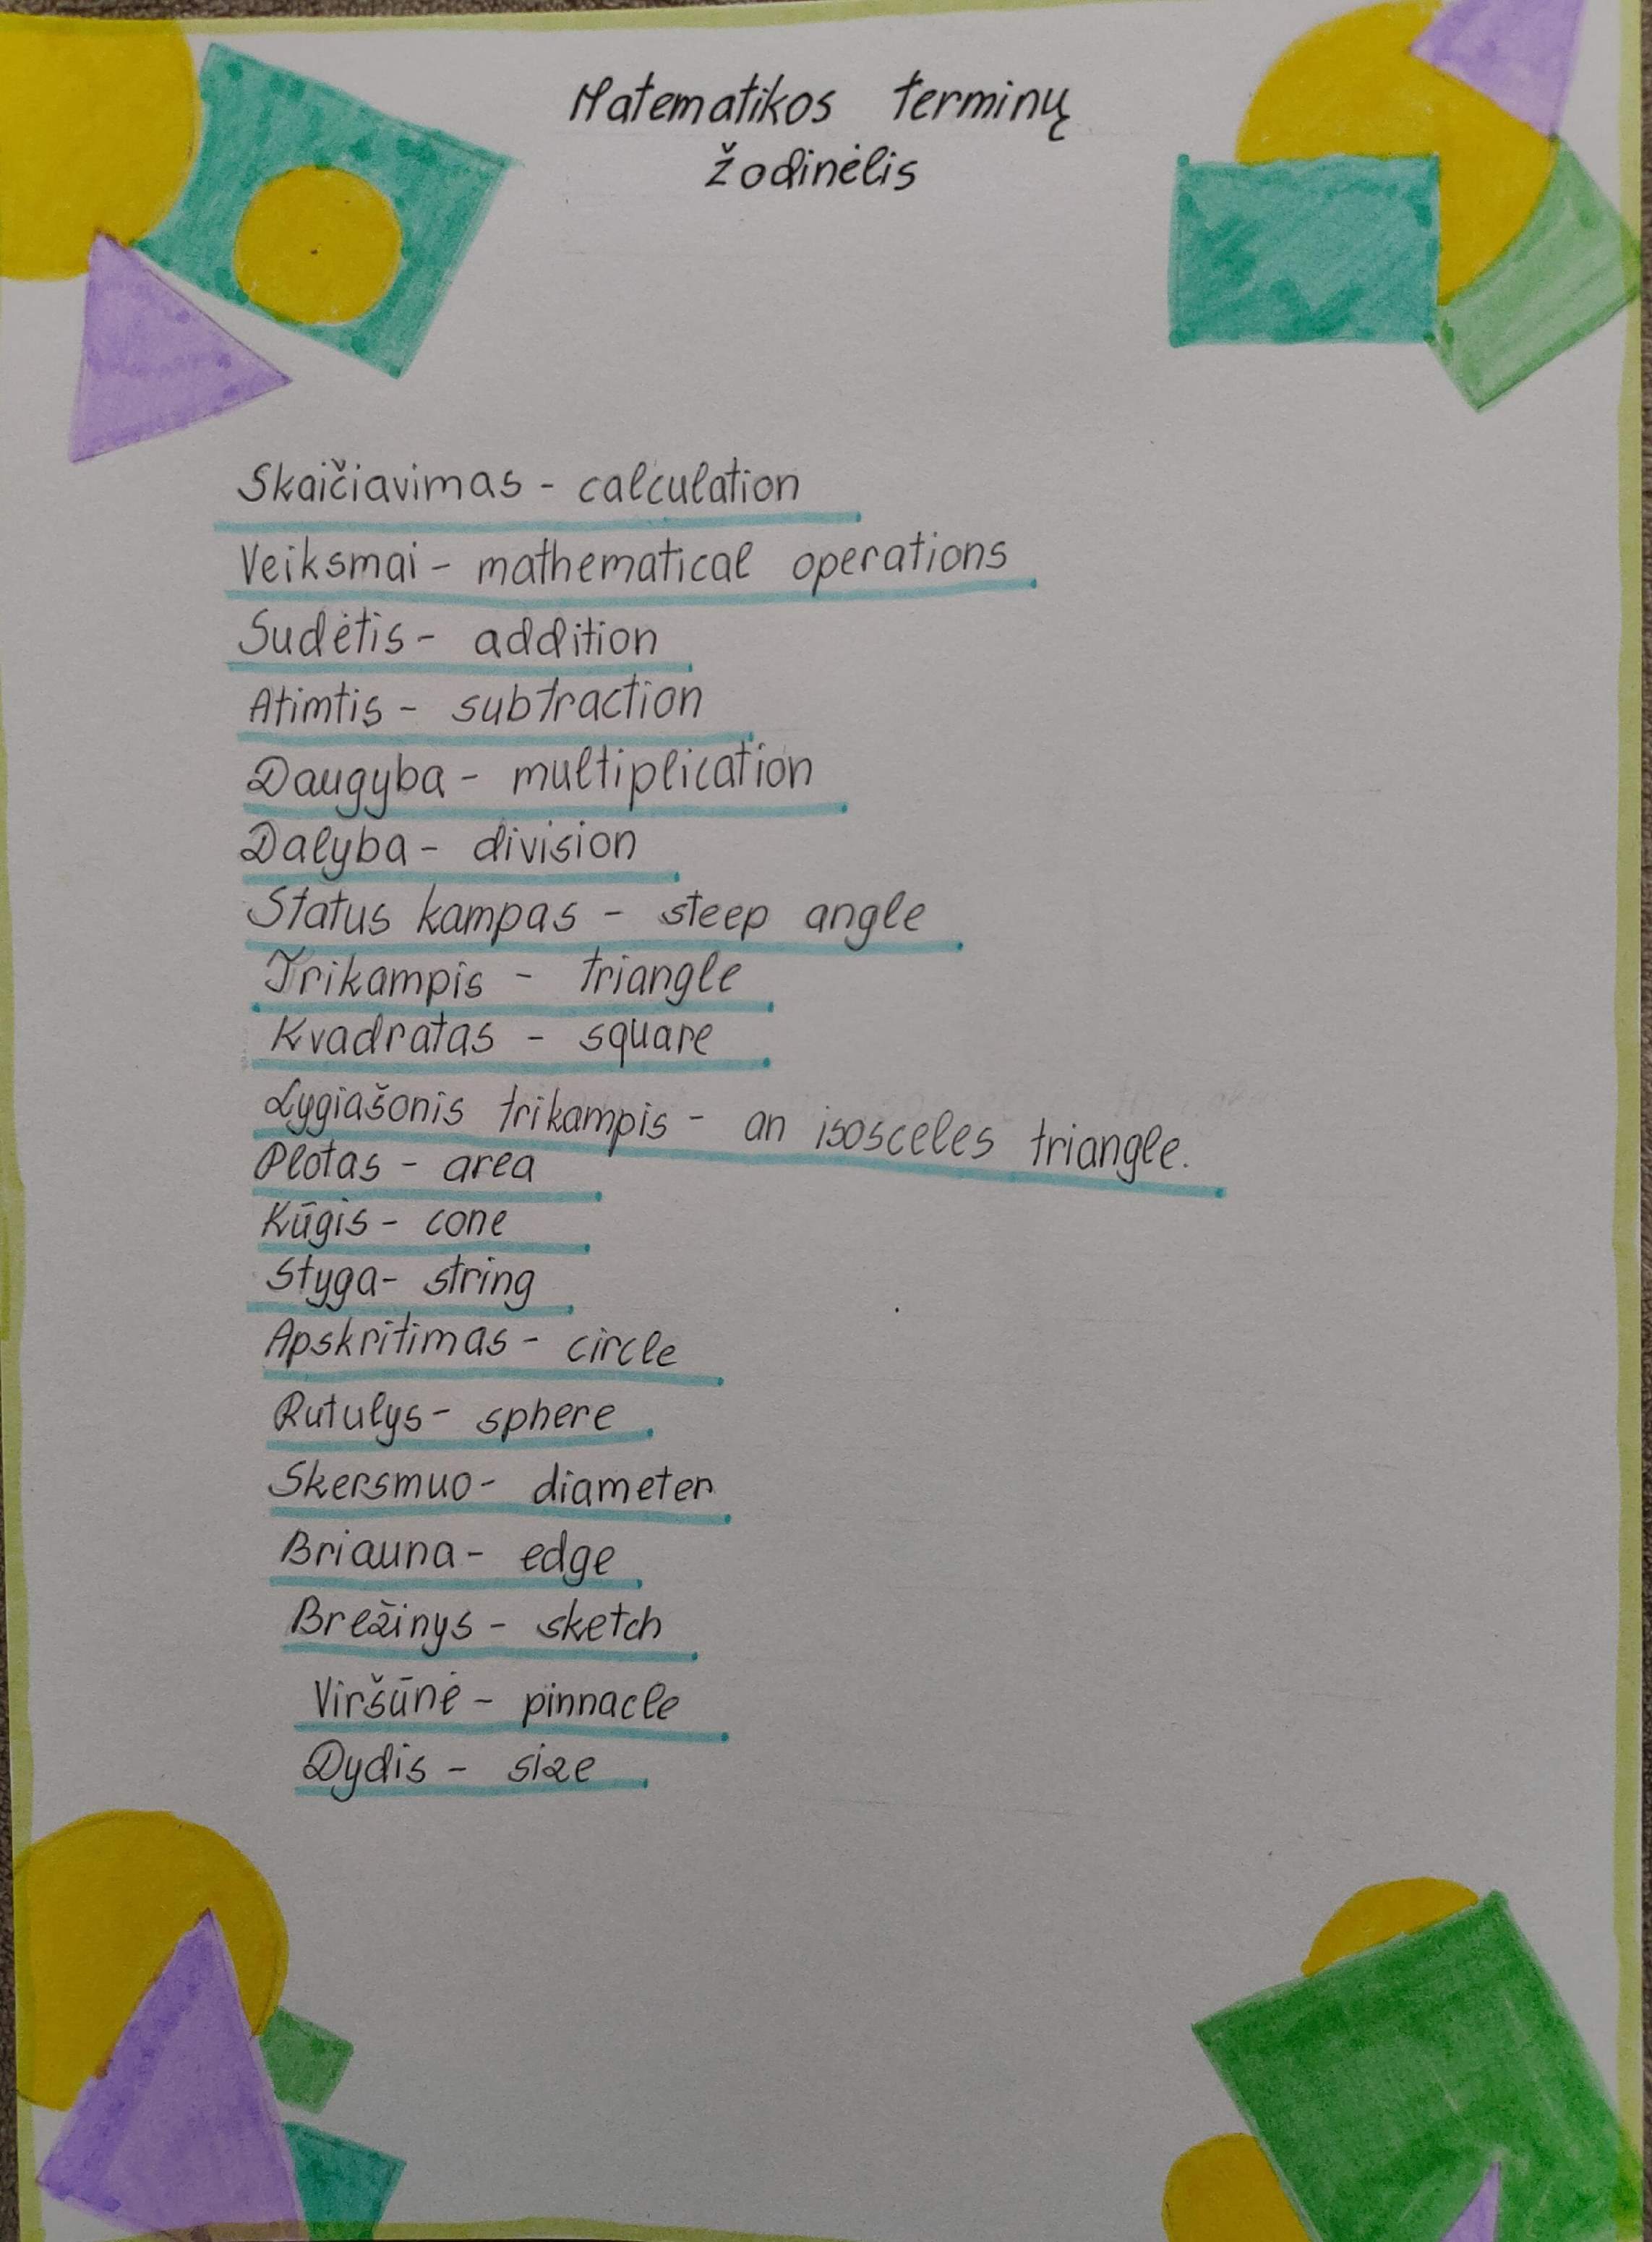 Matematikos terminų
žodinėlis
Skaičiavimas - calculation
Veiksmai - mathematical operations
Sudėtis - addition
Atimtis - subtraction
Daugyba - multiplication
Dalyba - division
Status kampas - steep angle
Trikampis - triangle
Kvadratas - square
Lygiašonis trikampis - an isosceles triangle.
Plotas - area
Kūgis - cone
Styga - string
Apskritimas - circle
Rutulys - sphere
Skersmuo - diameter
Briauna - edge
Brežinys - sketch
Viršūnė - pinnacle
Dydis - size